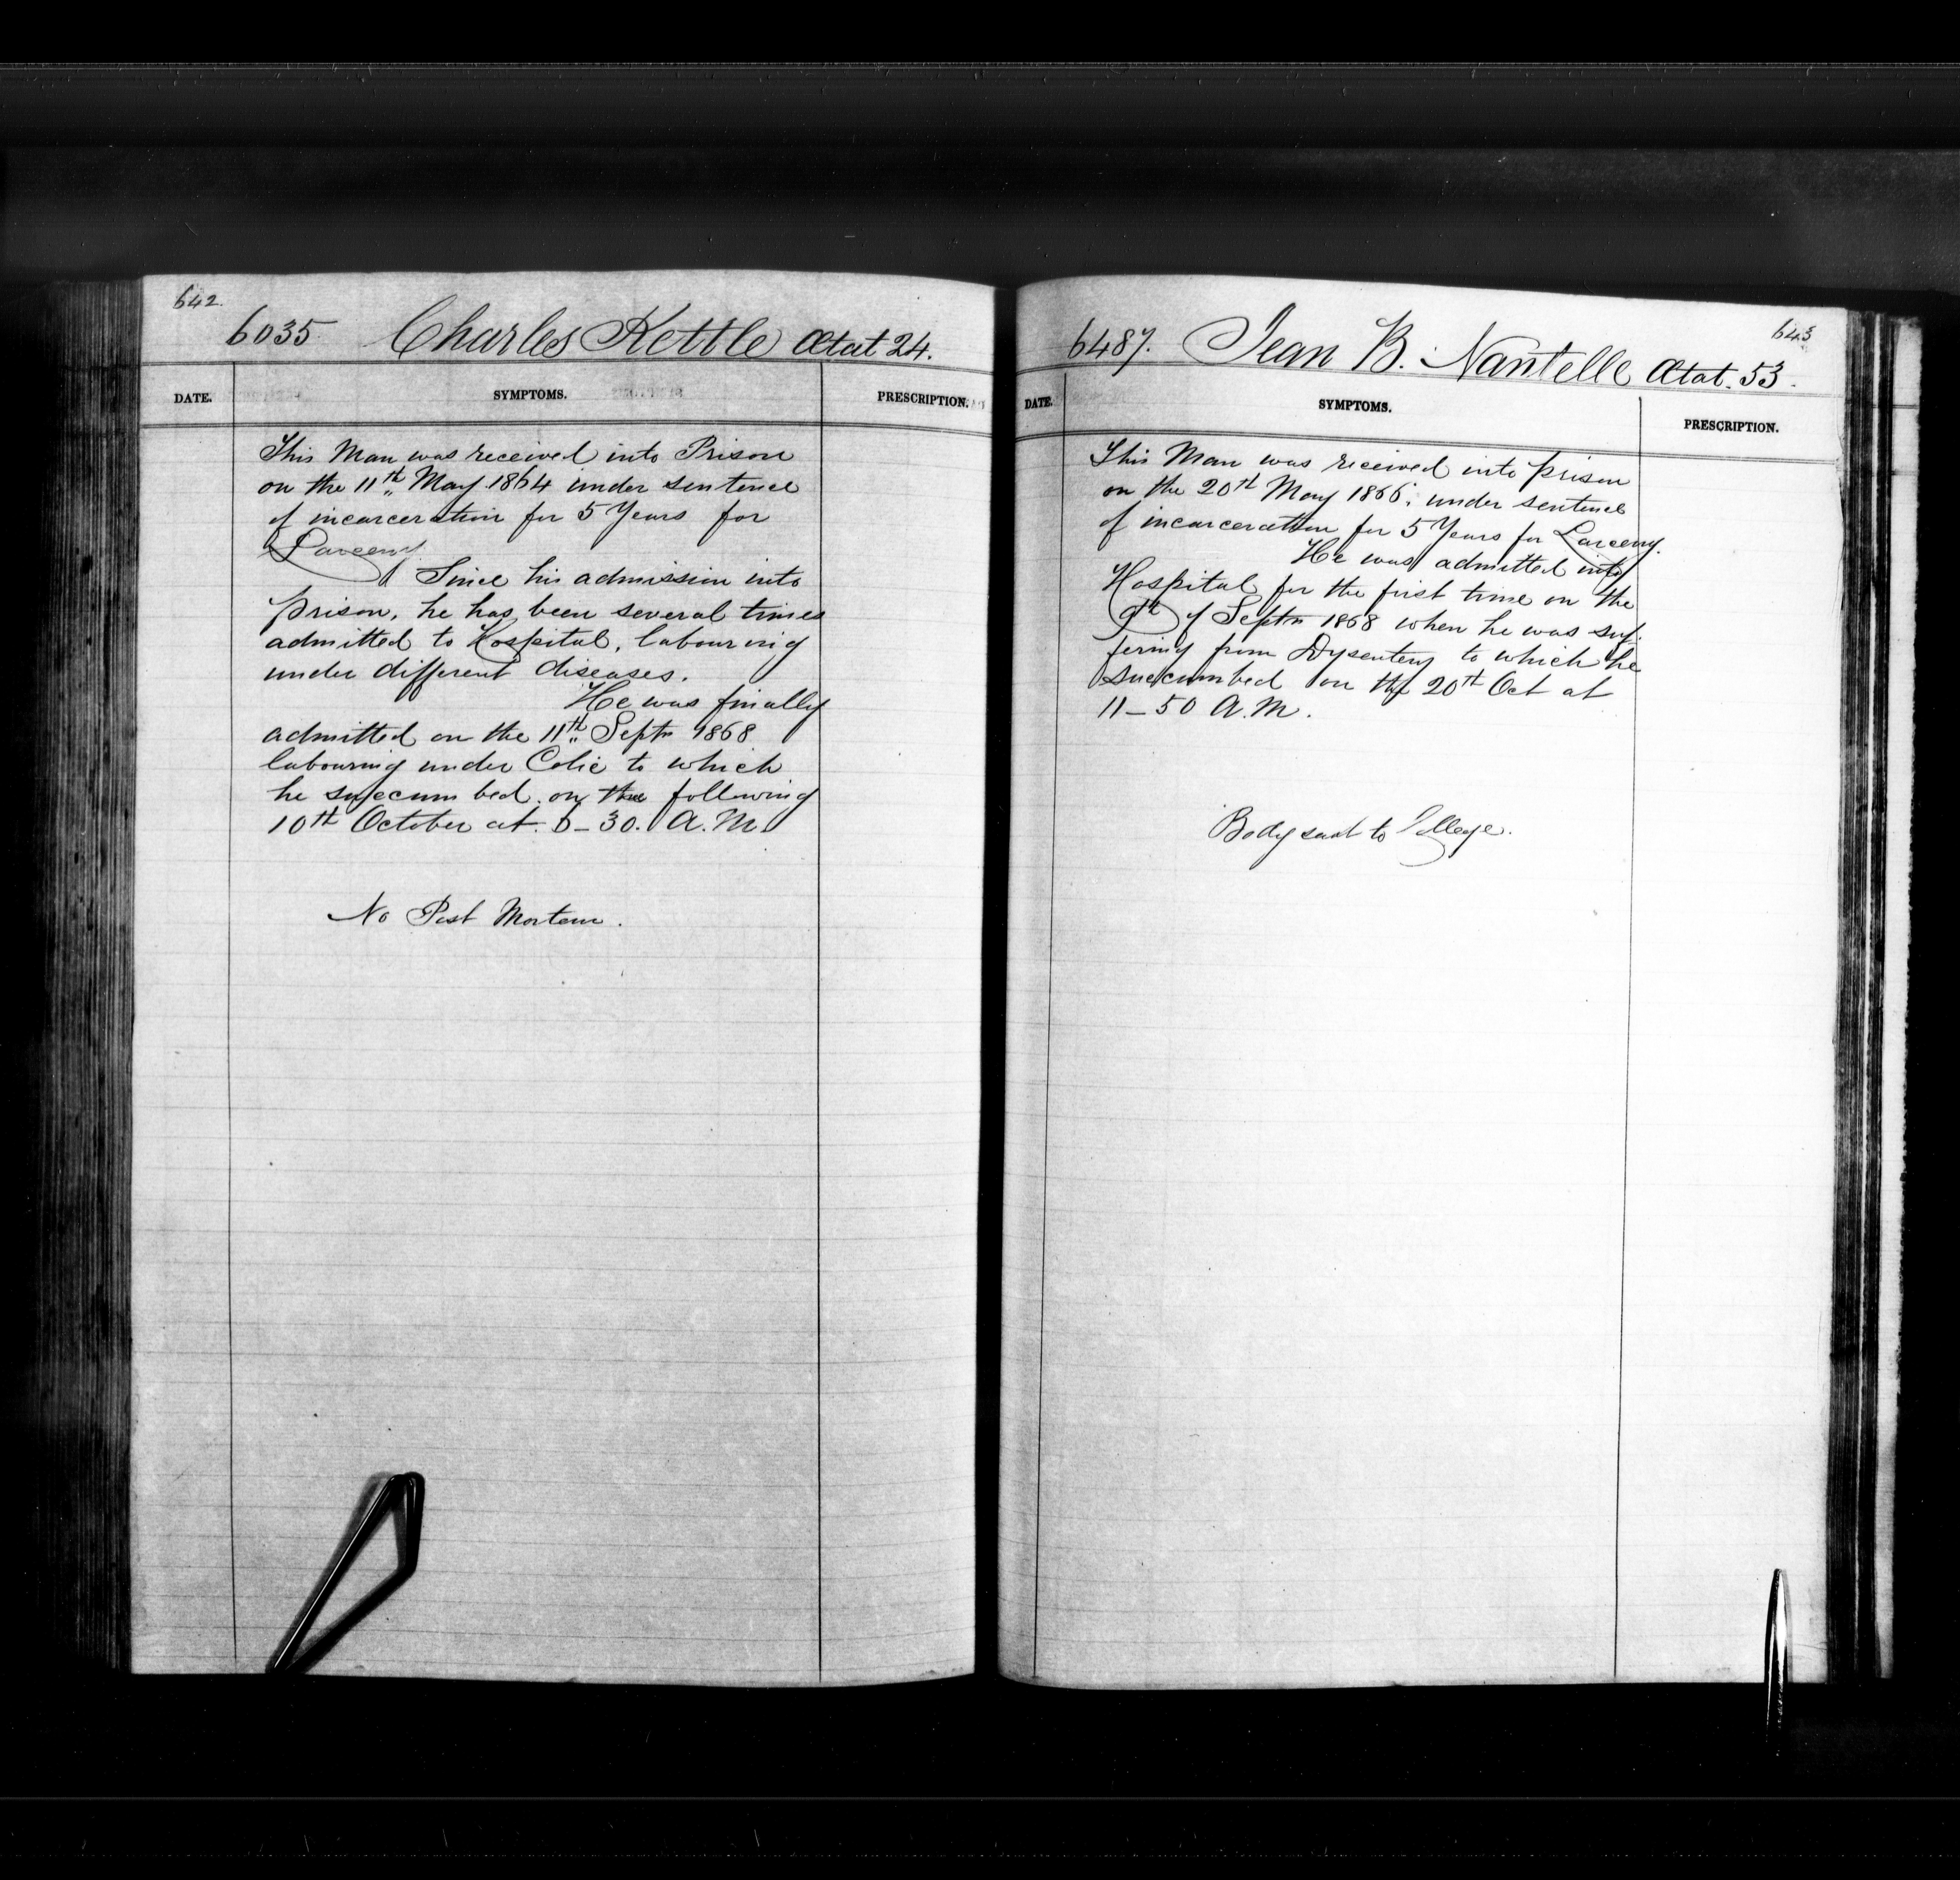 642.
6035 Charles Kettle Ætat 24.
DATE. SYMPTOMS. PRESCRIPTION.
This Man was received into Prison
on the 11th May 1864 under sentence
of incarceration for 5 Years for
Larceny
Since his admission into
prison, he has been several times
admitted to Hospital, labouring
under different diseases.
He was finally
admitted on the 11th Septr 1868
labouring under Colic to which
he succumbed on the following
10th October at 6-30. A.M.
No Post Mortem.
643
6487. Jean B. Nantelle Ætat. 53.
DATE. SYMPTOMS. PRESCRIPTION.
This Man was received into prison
on the 20th May 1866. under sentence
of incarceration for 5 Years for Larceny.
He was admitted into
Hospital for the first time on the
9th of Septr 1868 when he was suf-
fering from Dysentery to which he
succumbed on the 20th Oct at
11-50 A.M.
Body sent to College.